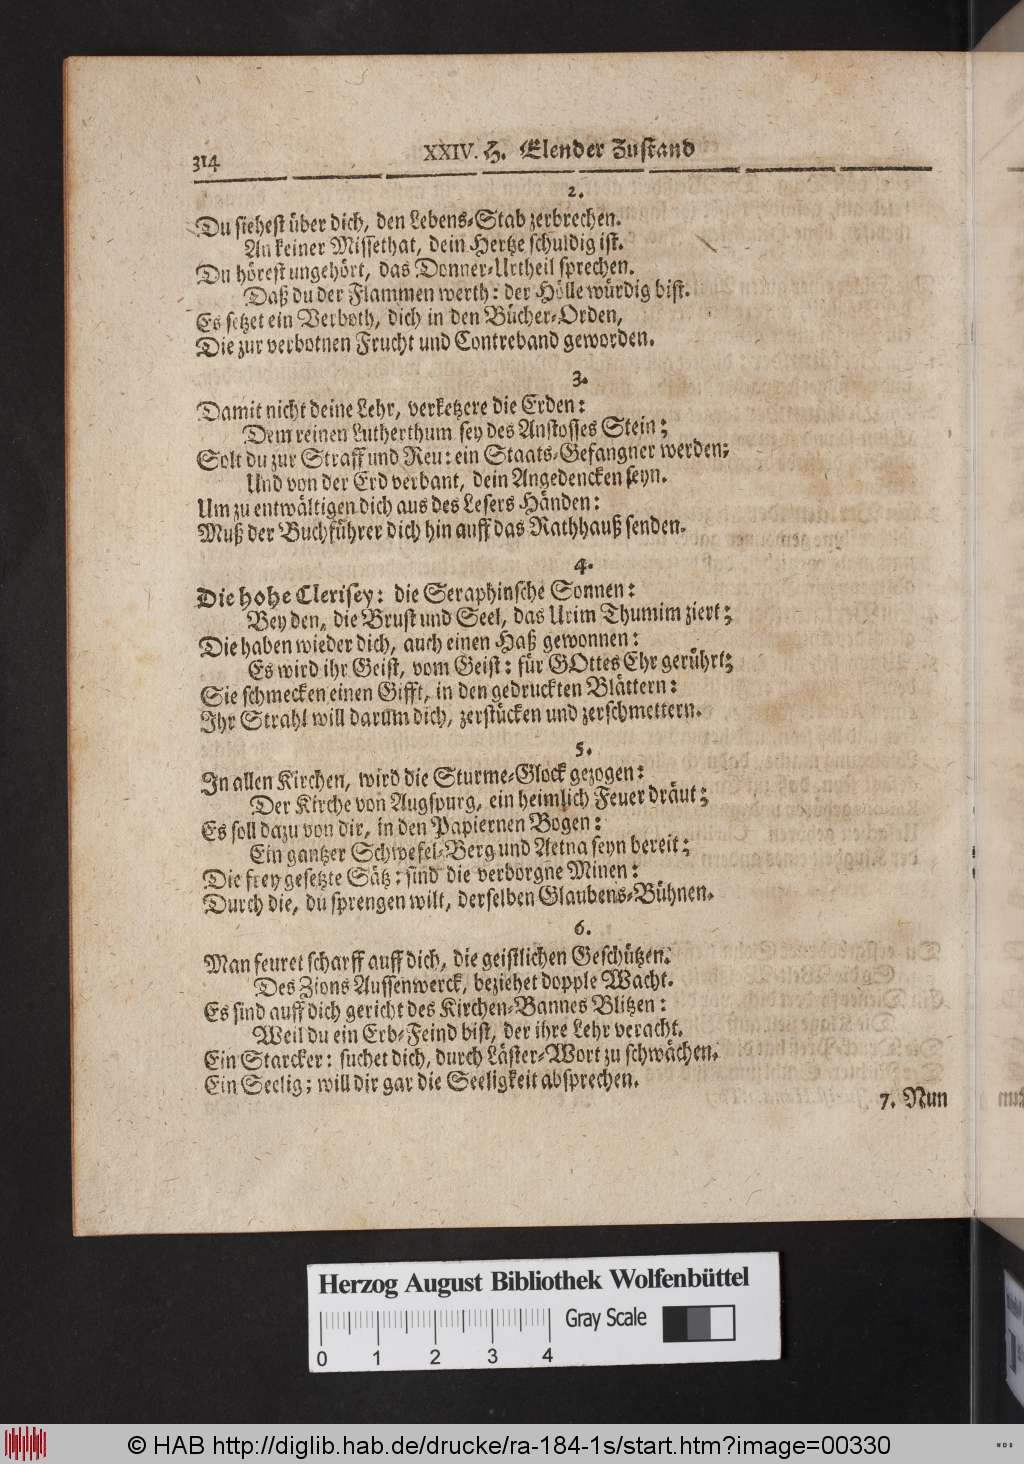 314
XXIV. H. Elender Zustand
2.
Du siehest über dich, den Lebens-Stab zerbrechen.
An keiner Missethat, dein Hertze schuldig ist.
Du hörest ungehört, das Donner-Urtheil sprechen.
Daß du der Flammen werth: der Hölle würdig bist.
Es setzet ein Verboth, dich in den Bücher-Orden,
Die zur verbotnen Frucht und Contreband geworden.
3.
Damit nicht deine Lehr, verketzere die Erden:
Dem reinen Lutherthum sey des Anstosses Stein;
Solt du zur Straff und Reu: ein Staats-Gefangner werden;
Und von der Erd verbant, dein Angedencken seyn.
Um zu entwältigen dich aus des Lesers Händen:
Muß der Buchführer dich hin auff das Rathhauß senden.
4.
Die hohe Clerisey: die Seraphinsche Sonnen:
Bey den, die Brust und Seel, das Urim Thumim ziert;
Die haben wieder dich, auch einen Haß gewonnen:
Es wird ihr Geist, vom Geist: für GOttes Ehr gerührt;
Sie schmecken einen Gifft, in den gedruckten Blättern:
Ihr Strahl will darum dich, zerstücken und zerschmettern.
5.
In allen Kirchen, wird die Sturme-Glock gezogen:
Der Kirche von Augspurg, ein heimlich Feuer dräut;
Es soll dazu von dir, in den Papiernen Bogen:
Ein gantzer Schwefel-Berg und Aetna seyn bereit;
Die frey gesetzte Sätz: sind die verborgne Minen:
Durch die, du sprengen wilt, derselben Glaubens-Bühnen.
6.
Man feuret scharff auff dich, die geistlichen Geschützen.
Des Zions Aussenwerck, beziehet dopple Wacht.
Es sind auff dich gericht des Kirchen-Bannes Blitzen:
Weil du ein Erb-Feind bist, der ihre Lehr veracht.
Ein Starcker: suchet dich, durch Läster-Wort zu schwächen.
Ein Seelig; will dir gar die Seeligkeit absprechen.
7. Nun
Herzog August Bibliothek Wolfenbüttel
Gray Scale
0 1 2 3 4
© HAB http://diglib.hab.de/drucke/ra-184-1s/start.htm?image=00330